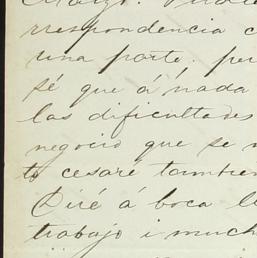 rrespondencia c
una parte. per
sé que á nada
las dificultades
negocio que se
to cesare tambien
Diré á boca l
trabajo i much